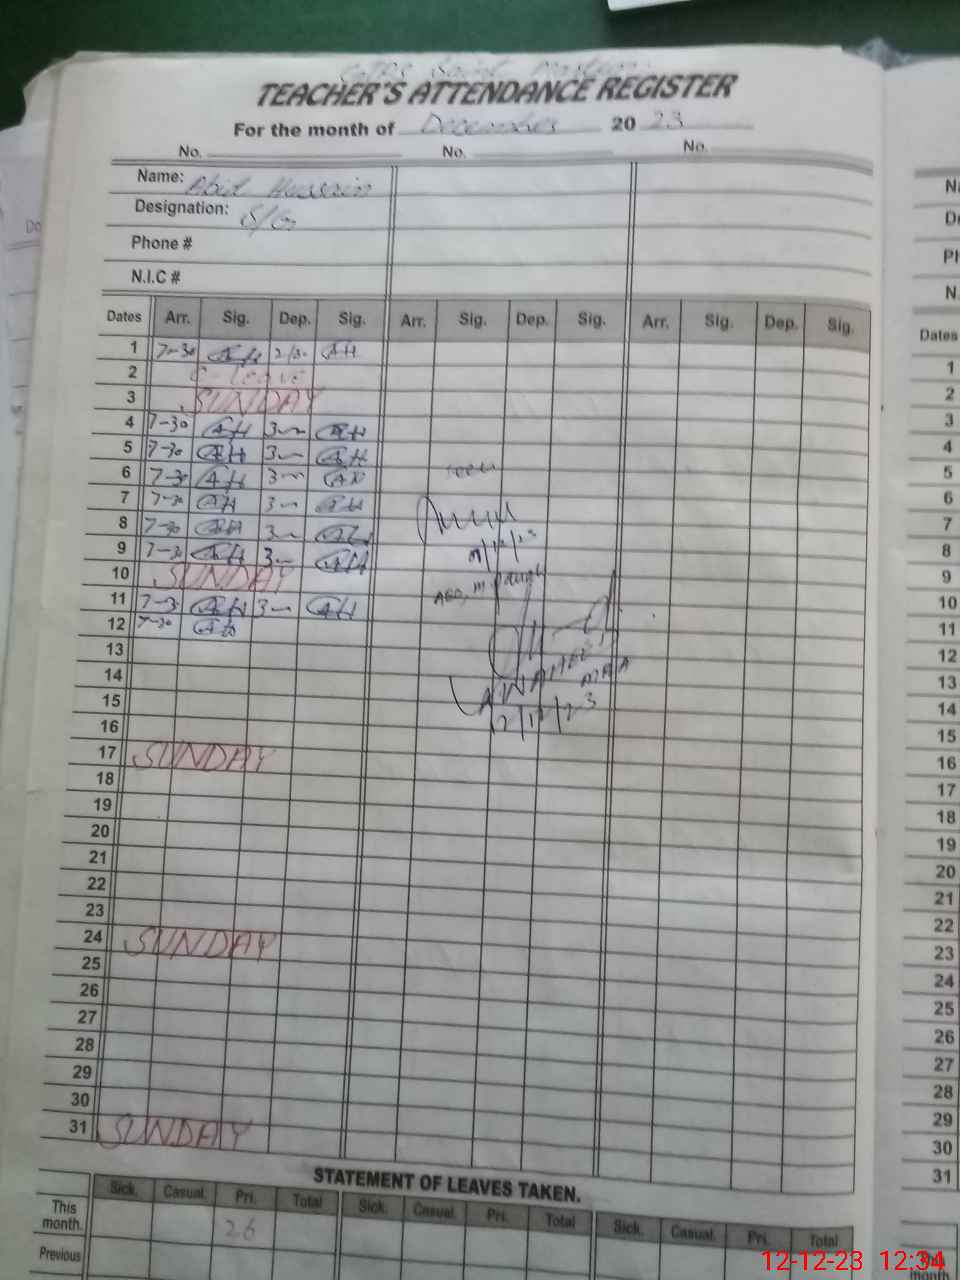 TEACHER'S ATTENDANCE REGISTER
For the month of December 20 23
No. No. No.
Name: Abid Hussain
Designation: S/G
Phone #
N.I.C #
Dates Arr. Sig. Dep. Sig. Arr. Sig. Dep. Sig. Arr. Sig. Dep. Sig.
1 7-30 AH 2/30 AH
2 C-leave
3 SUNDAY
4 7-30 AH 3 AH
5 7-30 AH 3 AH
6 7-30 AH 3 AH
7 7-30 AH 3 AH
8 7-30 AH 3 AH
9 7-30 AH 3 AH
10 SUNDAY
11 7-30 AH 3 AH
12 7-30 AH
13
14
15
16
17 SUNDAY
18
19
20
21
22
23
24 SUNDAY
25
26
27
28
29
30
31 SUNDAY
seen
MEA
12/12/23
STATEMENT OF LEAVES TAKEN.
Sick. Casual. Pri. Total Sick. Casual. Pri. Total Sick. Casual. Pri. Total
This month. 26
Previous
Dates
1
2
3
4
5
6
7
8
9
10
11
12
13
14
15
16
17
18
19
20
21
22
23
24
25
26
27
28
29
30
31
month
12-12-23 12:34